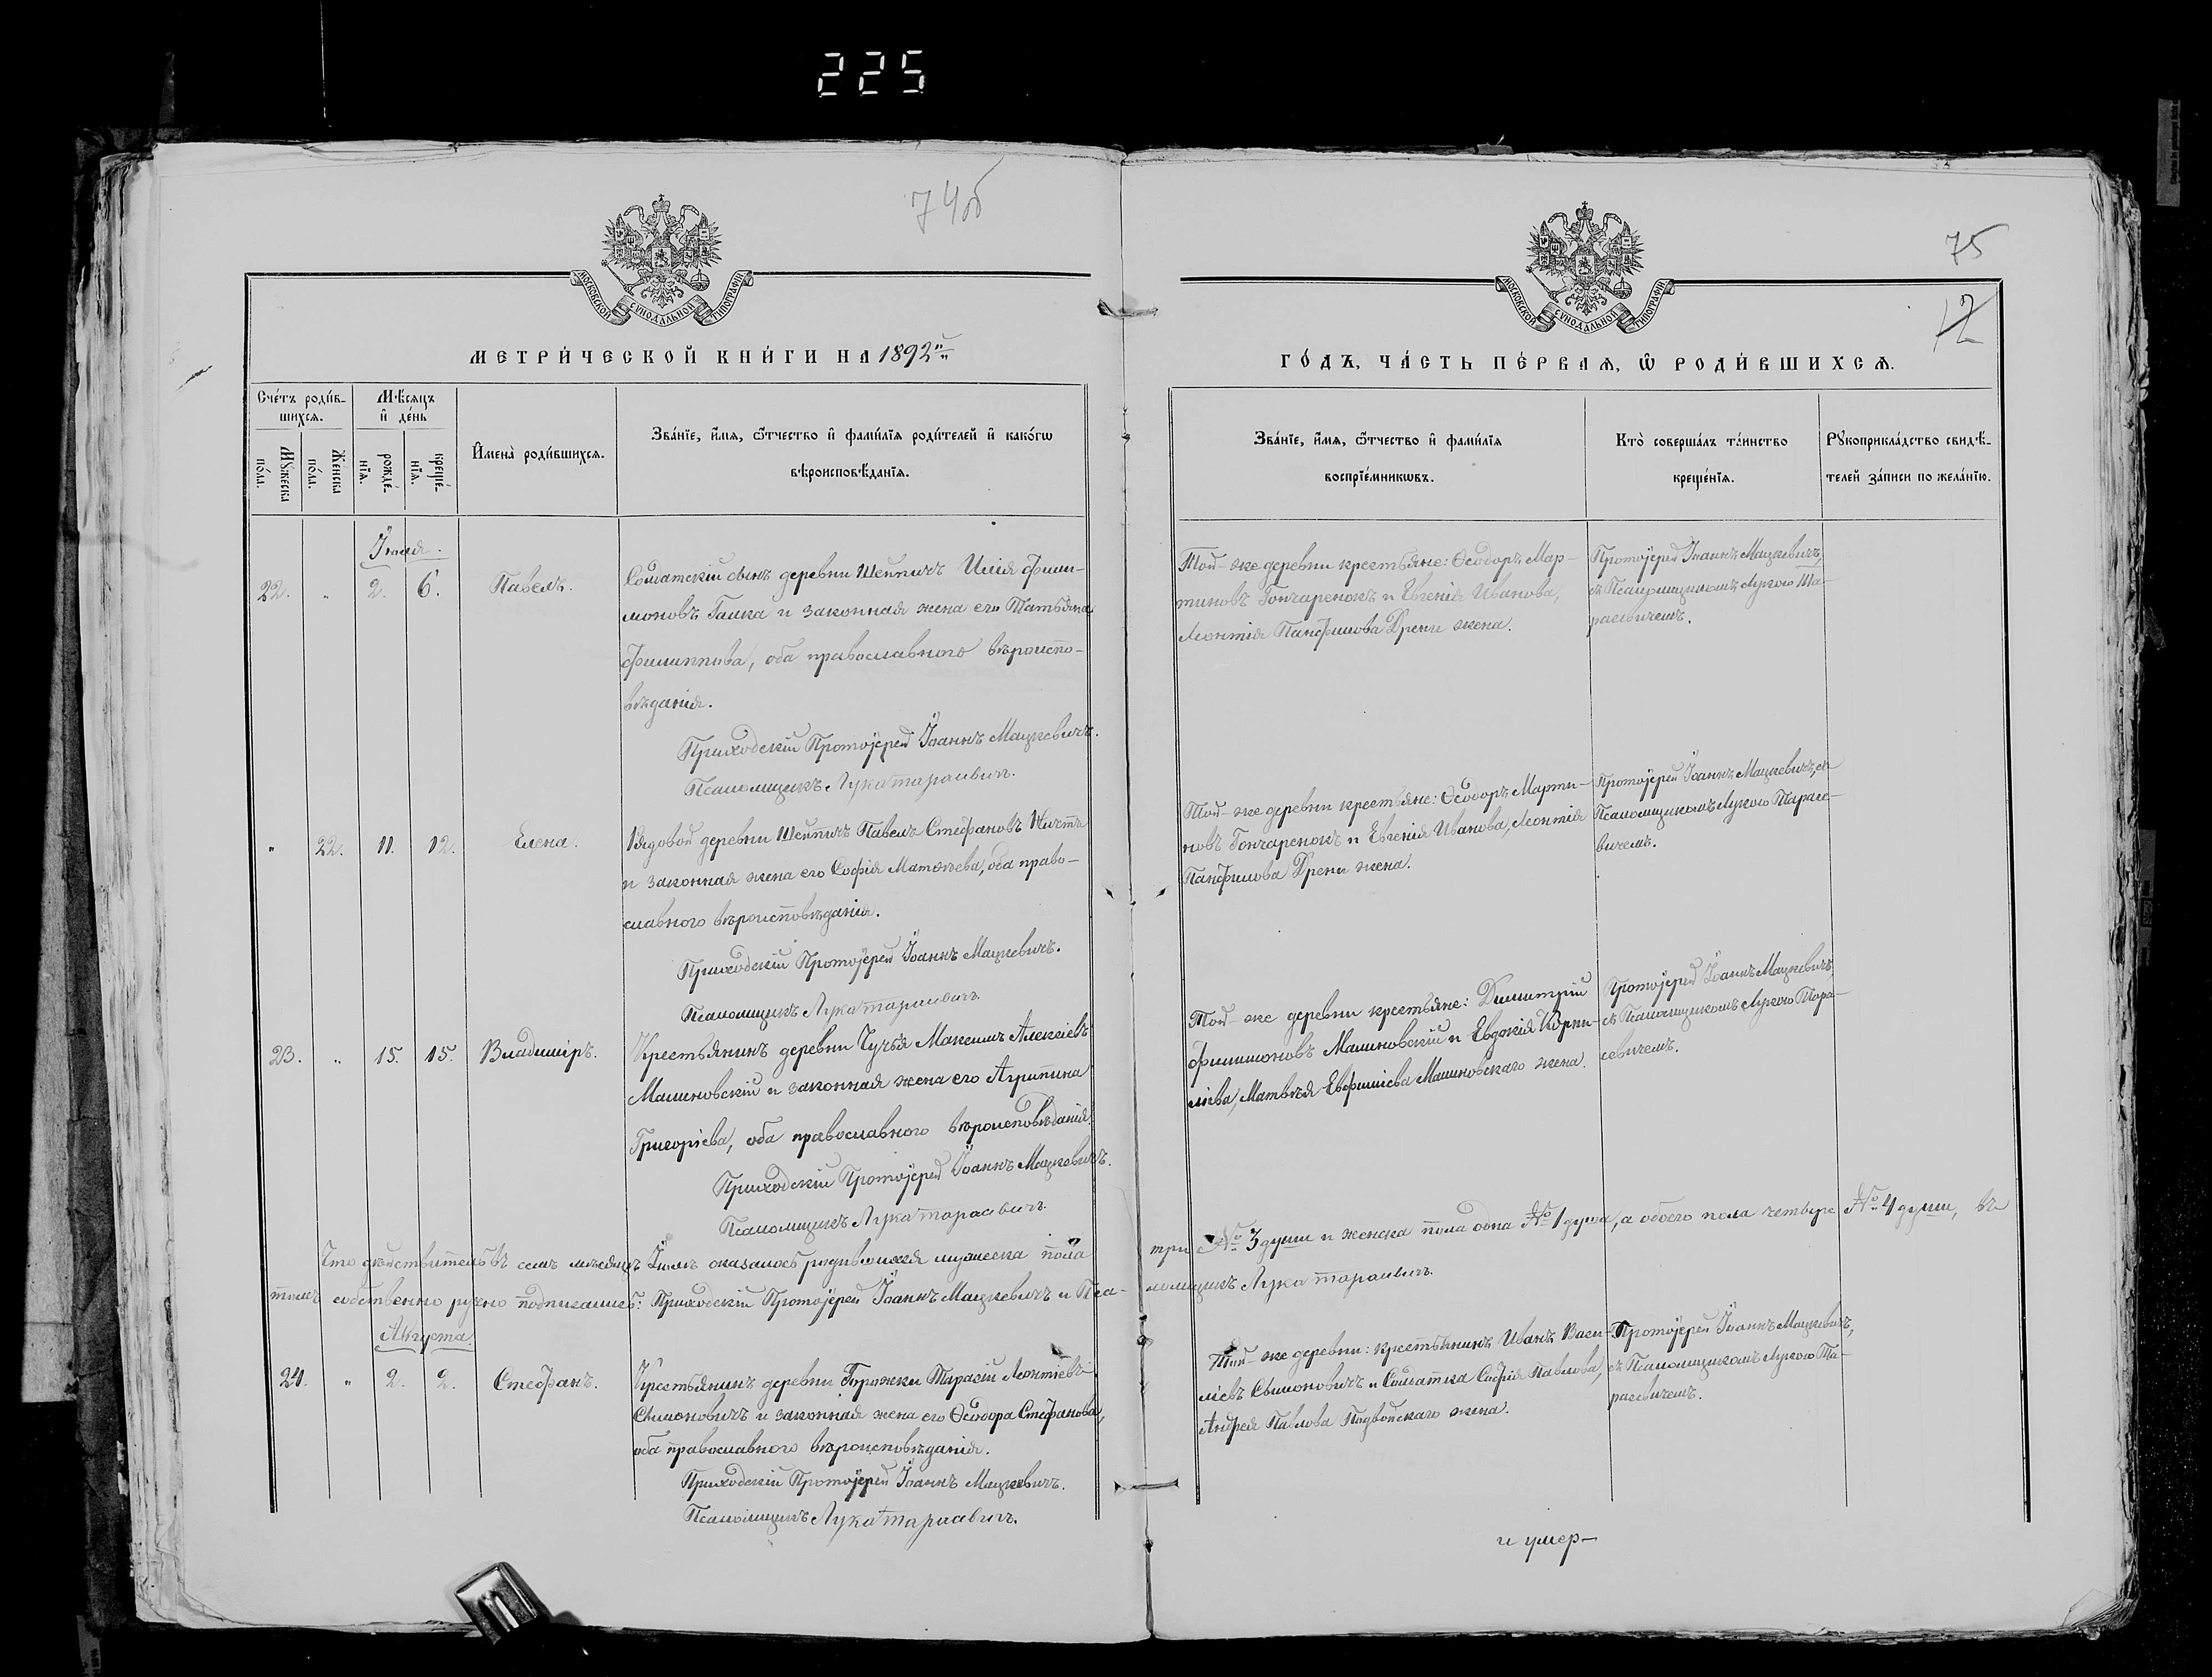 225
74об
75
12
МОСКОВСКОЙ СУНОДАЛЬНОЙ ТИПОГРАФІИ
МОСКОВСКОЙ СУНОДАЛЬНОЙ ТИПОГРАФІИ
МЕТРИ́ЧЕСКОЙ КНИ́ГИ НА 1892й
ГО́ДЪ, ЧА́СТЬ ПЕ́РВАѦ, Ѡ҆ РОДИ́ВШИХСѦ.
Сче́тъ роди́в-
шихсѧ.
Мѣ́сѧцъ
и҆ де́нь
Мꙋ́жеска
по́ла.
Же́нска
по́ла.
рожде́-
нїѧ.
креще́-
нїѧ.
И҆мена̀ роди́вшихсѧ.
Зва́нїе, и҆́мѧ, ѻ҆́тчество и҆ фами́лїѧ роди́телей и҆ како́гѡ
вѣроисповѣ́данїѧ.
Зва́нїе, и҆́мѧ, ѻ҆́тчество и҆ фами́лїѧ
воспрїе́мникѡвъ.
Кто̀ соверша́лъ та́инство
креще́нїѧ.
Рꙋкоприкла́дство свидѣ́-
телей за́писи по жела́нїю.
Іюля.
22. „ 2. 6. Павелъ.
Солдатскій сынъ деревни Шейпичъ Илія Фили-
моновъ Гашка и законная жена его Татьяна
Филиппова, оба православного вѣроиспо-
вѣданія.
Приходскій Протоіерей Іоаннъ Мацкевичъ.
Псаломщикъ Лука Тарасевичъ.
Той-же деревни крестьяне: Ѳеодоръ Мар-
тиновъ Гончаренокъ и Евгенія Иванова,
Леонтія Панфилова Дрени жена.
Протоіерей Іоаннъ Мацкевичъ,
съ Псаломщикомъ Лукою Та-
расевичемъ.
„ 22. 11. 12. Елена.
Рядовой деревни Шейпичъ Павелъ Стефановъ
и законная жена его Софія Матѳеева, оба право-
славного вѣроисповѣданія.
Приходскій Протоіерей Іоаннъ Мацкевичъ.
Псаломщикъ Лука Тарасевичъ.
Той-же деревни крестьяне: Ѳеодоръ Марти-
новъ Гончаренокъ и Евгенія Иванова, Леонтія
Панфилова Дрени жена.
Протоіерей Іоаннъ Мацкевичъ, съ
Псаломщикомъ Лукою Тарасе-
вичемъ.
23. „ 15. 15. Владиміръ.
Крестьянинъ деревни Чучья Максимъ Алексіевъ
Малиновскій и законная жена его Агрипина
Григоріева, оба православного вѣроисповѣданія.
Приходскій Протоіерей Іоаннъ Мацкевичъ.
Псаломщикъ Лука Тарасевичъ.
Той-же деревни крестьяне: Димитрій
Филимоновъ Малиновскій и Евдокія Корни-
ліева, Матвѣя Евфиміева Малиновскаго жена.
Протоіерей Іоаннъ Мацкевичъ,
съ Псаломщикомъ Лукою Тара-
севичемъ.
Что дѣйствительно въ семъ мѣсяцѣ Іюлѣ оказалось родившихся мужеска пола
три № 3 души и женска пола одна № 1 душа, а обоего пола четыре № 4 души, въ
томъ собственно ручно подписались: Приходскій Протоіерей Іоаннъ Мацкевичъ и Пса-
ломщикъ Лука Тарасевичъ.
Августа
24. „ 2. 2. Стефанъ.
Крестьянинъ деревни Горожки Тарасій Леонтіевъ
Симоновичъ и законная жена его Ѳеодора Стефанова,
оба православного вѣроисповѣданія.
Приходскій Протоіерей Іоаннъ Мацкевичъ.
Псаломщикъ Лука Тарасевичъ.
Той-же деревни: крестьянинъ Иванъ Васи-
ліевъ Симоновичъ и Солдатка Софія Павлова,
Андрея Павлова Подвойскаго жена.
Протоіерей Іоаннъ Мацкевичъ,
съ Псаломщикомъ Лукою Та-
расевичемъ.
и умер-